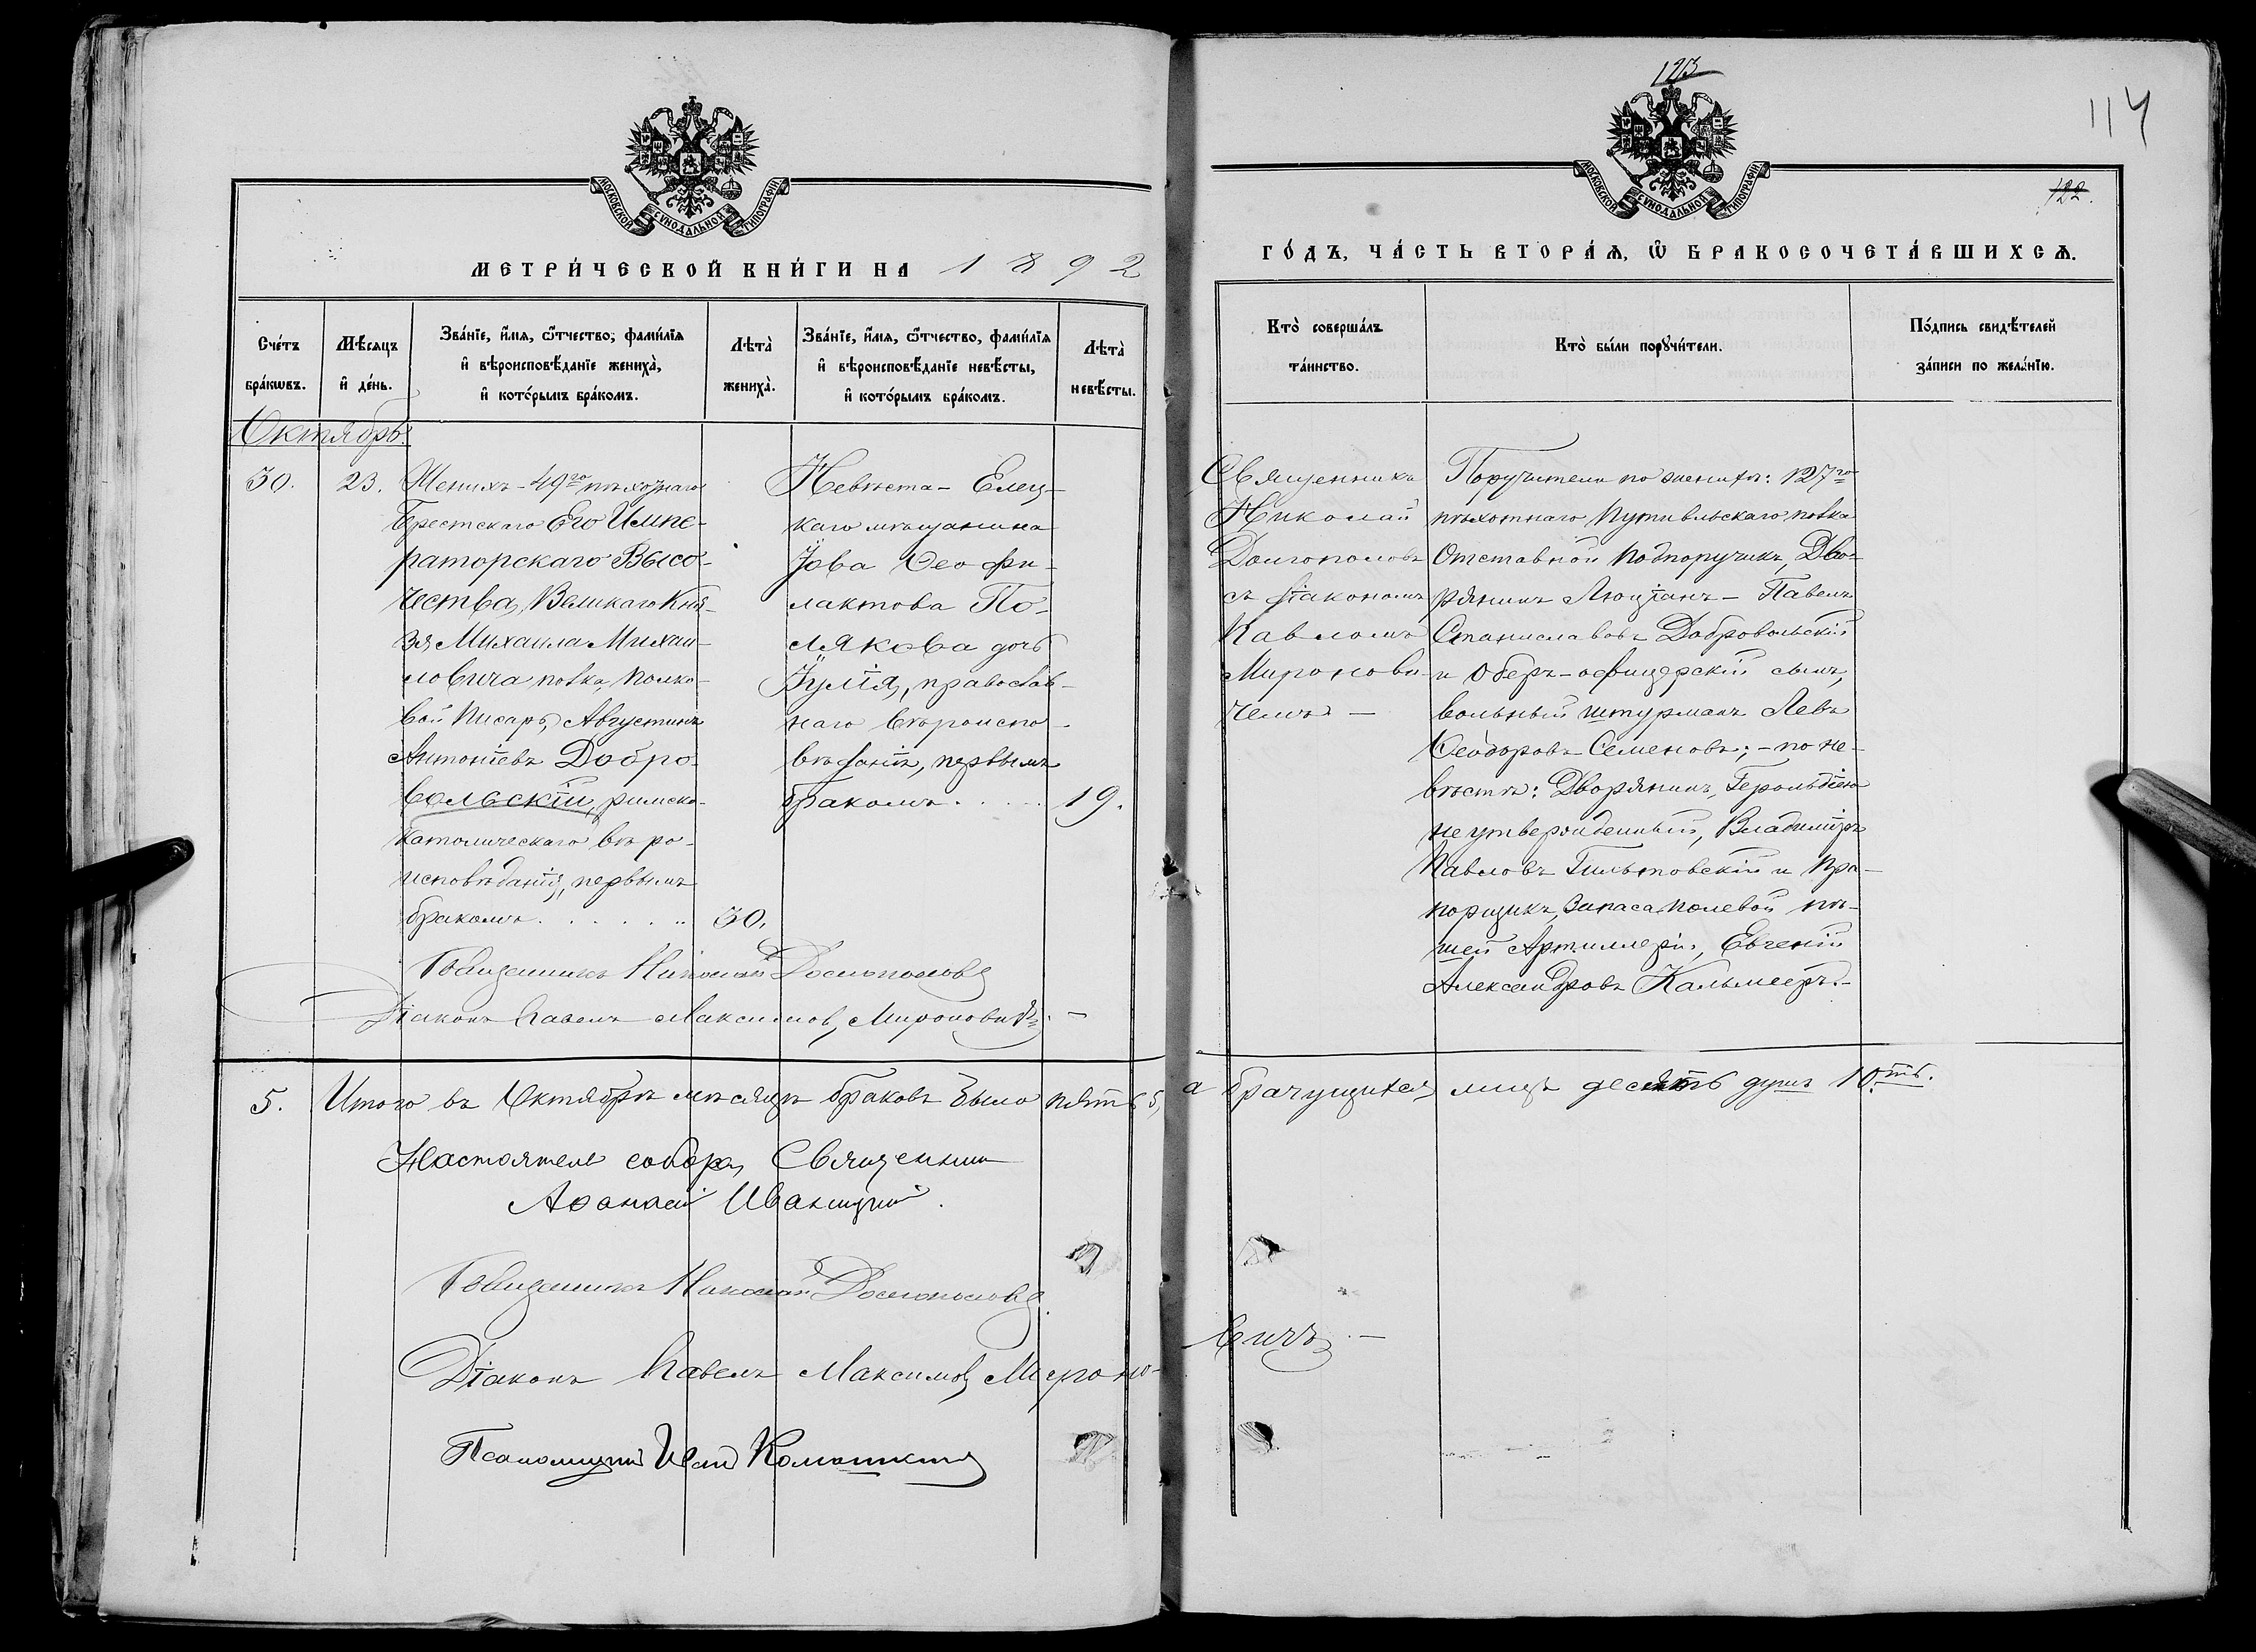 123
114
122.
МОСКОВСКОЙ СУНОДАЛЬНОЙ ТИПОГРАФІИ
МОСКОВСКОЙ СУНОДАЛЬНОЙ ТИПОГРАФІИ
МЕТРИ́ЧЕСКОЙ КНИ́ГИ НА 1892
ГО́ДЪ, ЧА́СТЬ ВТОРА́Ѧ, Ѽ БРАКОСОЧЕТА́ВШИХСѦ.
Сче́тъ
бра́кѡвъ.
Мѣ́сяцъ
и҆ де́нь.
Зва́нїе, и҆́мѧ, ѻ҆́тчество, фами́лїѧ
и҆ вѣроисповѣ́данїе жениха̀,
и҆ кото́рымъ бра́комъ.
Лѣта̀
жениха̀.
Зва́нїе, и҆́мѧ, ѻ҆́тчество, фами́лїѧ
и҆ вѣроисповѣ́данїе невѣ́сты,
и҆ кото́рымъ бра́комъ.
Лѣта̀
невѣ́сты.
Кто̀ соверша́лъ
та́инство.
Кто̀ бы́ли порꙋчи́тели.
По́дпись свидѣ́телей
за́писи по жела́нїю.
Октябрь.
30.
23.
Женихъ - 49го пѣхотнаго
Брестскаго Его Импе-
раторскаго Высо-
чества, Великаго Кня-
зя Михаила Михаи-
ловича полка, Полко-
вой Писарь, Августинъ
Антоніевъ Добро-
вольскій, римско-
католическаго вѣро-
исповѣданія, первымъ
бракомъ . . . . . .
30.
Невѣста - Елец-
каго мѣщанина
Іова Ѳеофи-
лактова По-
лякова дочь
Іулія, православ-
наго вѣроиспо-
вѣданія, первымъ
бракомъ . . . .
19.
Священникъ
Николай
Долгополовъ
съ діакономъ
Павломъ
Миронови-
чемъ —
Поручители по женихѣ: 127го
пѣхотнаго Путивльскаго полка
Отставной Подпоручикъ, Дво-
рянинъ Люціанъ - Павелъ
Станиславовъ Добровольскій
и Оберъ-офицерскій сынъ,
вольный штурманъ Левъ
Ѳеодоровъ Семеновъ; - по не-
вѣстѣ: Дворянинъ, Герольдіею
не утвержденный, Владиміръ
Павловъ Гильтовскій и Пра-
порщикъ, Запаса полевой пѣ-
шей Артиллеріи, Евгеній
Александровъ Кальмееръ.-
Священникъ Николай Долгополовъ
Діаконъ Павелъ Максимовъ Мироновичъ. —
5.
Итого въ Октябрѣ мѣсяцѣ браковъ было пять 5, а брачущихся лицъ десять душъ 10.ть.
Настоятель собора, Священникъ
Аѳанасій Иваницкій.
Священникъ Николай Долгополовъ.
Діаконъ Павелъ Максимовъ Мироно-
вичъ. —
Псаломщикъ Иванъ